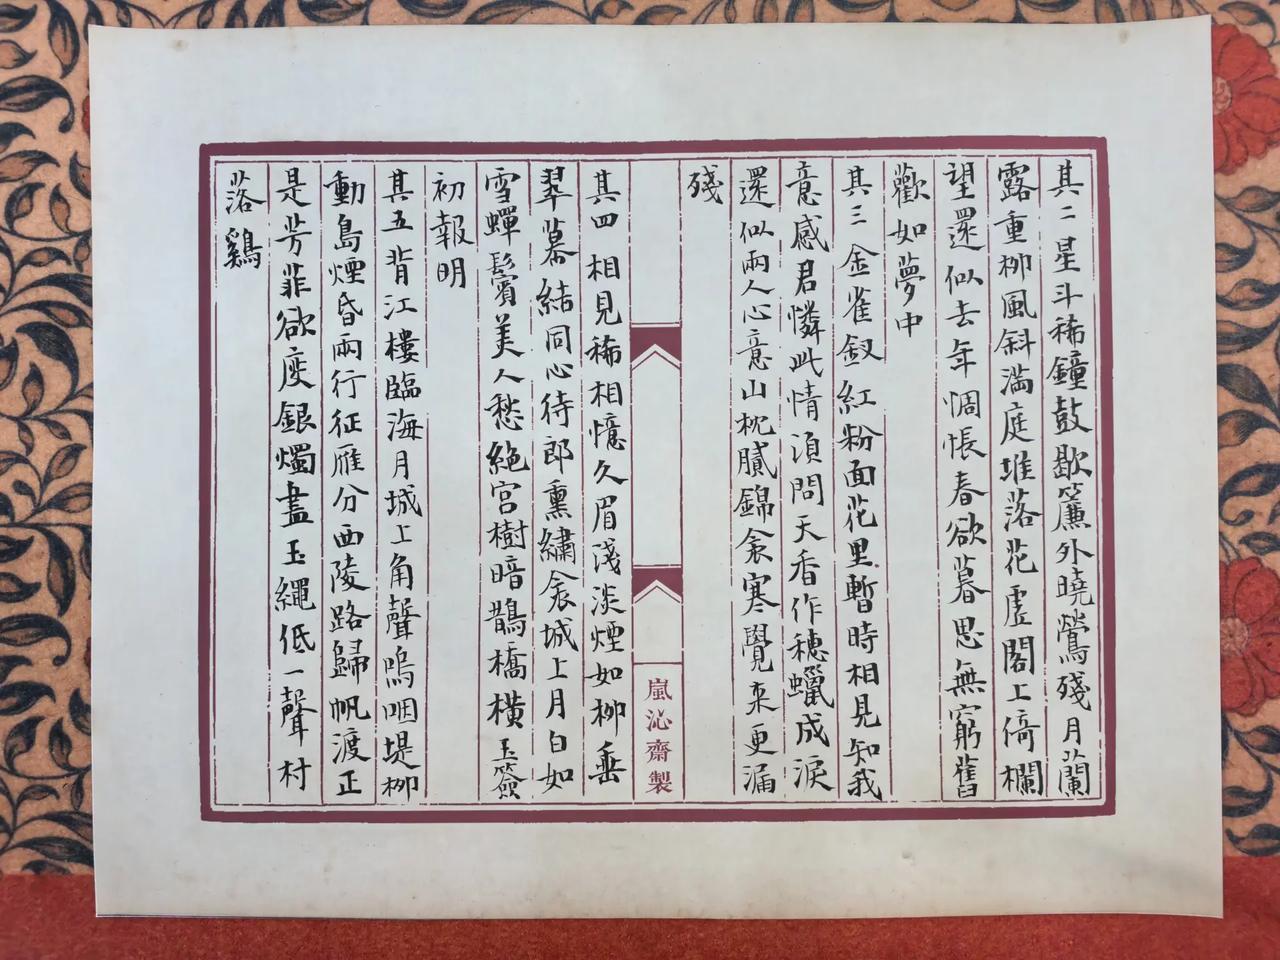 其二星斗稀鐘鼓歇簾外曉鶯殘月蘭
露重柳風斜滿庭堆落花虛閣上倚欄
望還似去年惆悵春欲暮思無窮舊
歡如夢中
其三金雀釵紅粉面花里暫時相見知我
意感君憐此情須問天香作穗蠟成淚
還似兩人心意山枕膩錦衾寒覺來更漏
殘
嵐沁齋製
其四相見稀相憶久眉淺淡煙如柳垂
翠幕結同心待郎熏繡衾城上月白如
雪蟬鬢美人愁絕宮樹暗鵲橋橫玉簽
初報明
其五背江樓臨海月城上角聲嗚咽堤柳
動島煙昏兩行征雁分西陵路歸帆渡正
是芳菲欲度銀燭盡玉繩低一聲村
落鷄